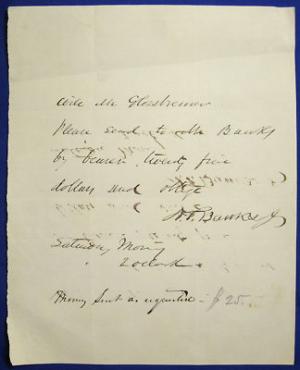 Will Mr Glossbrenner
Please send to Banks
by bearer, twenty five
dollars and oblige
Banks Jr
Saturday Morng
2 oclock
Money sent as requested - $25.